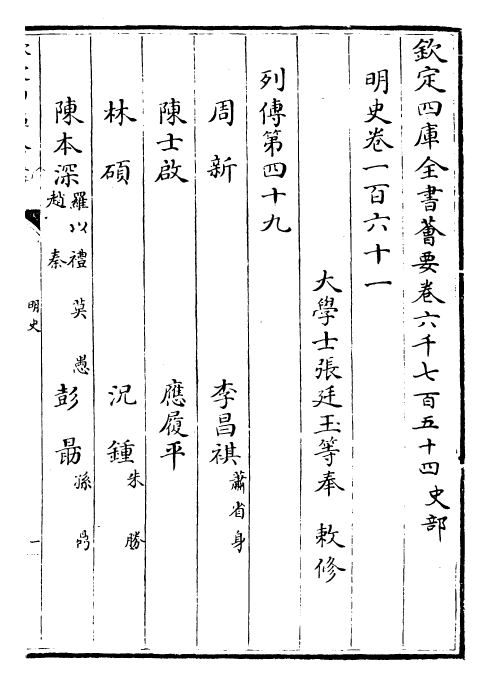 欽定四庫全書薈要卷六千七百五十四 史部
明史卷一百六十一
大學士張廷玉等奉 敕修
列傳第四十九
周新 李昌祺 蕭省身
陳士啟 應履平
林碩 況鍾 朱勝
陳本深 羅以禮 莫愚 趙秦 彭勗 孫鼎
明史
一